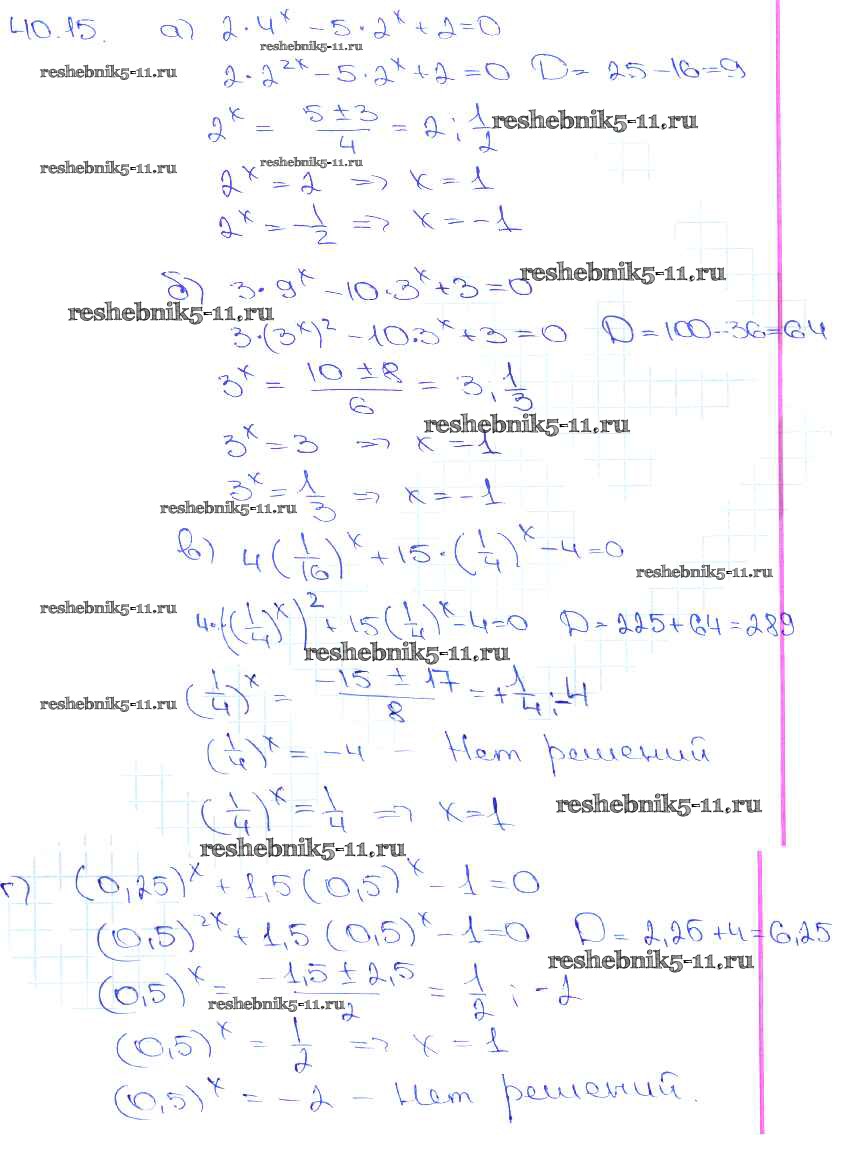 40.15. а) 2·4^x − 5·2^x + 2 = 0
reshebnik5-11.ru
reshebnik5-11.ru 2·2^{2x} − 5·2^x + 2 = 0 D = 25 − 16 = 9
2^x = (5 ± 3)/4 = 2; 1/2 reshebnik5-11.ru
reshebnik5-11.ru reshebnik5-11.ru
2^x = 2 => x = 1
2^x = -1/2 => x = −1
б) 3·9^x − 10·3^x + 3 = 0 reshebnik5-11.ru
reshebnik5-11.ru
3·(3^x)^2 − 10·3^x + 3 = 0 D = 100 − 36 = 64
3^x = (10 ± 8)/6 = 3; 1/3
reshebnik5-11.ru
3^x = 3 => x = 1
3^x = 1/3 => x = −1
reshebnik5-11.ru
в) 4(1/16)^x + 15·(1/4)^x − 4 = 0
reshebnik5-11.ru
reshebnik5-11.ru 4·((1/4)^x)^2 + 15(1/4)^x − 4 = 0 D = 225 + 64 = 289
reshebnik5-11.ru
reshebnik5-11.ru (1/4)^x = (−15 ± 17)/8 = +1/4; −4
(1/4)^x = −4 − Нет решений
(1/4)^x = 1/4 => x = 1 reshebnik5-11.ru
reshebnik5-11.ru
г) (0,25)^x + 1,5(0,5)^x − 1 = 0
(0,5)^{2x} + 1,5(0,5)^x − 1 = 0 D = 2,25 + 4 = 6,25
reshebnik5-11.ru
(0,5)^x = (−1,5 ± 2,5)/2 = 1/2; −2
reshebnik5-11.ru
(0,5)^x = 1/2 => x = 1
(0,5)^x = −2 − Нет решений.